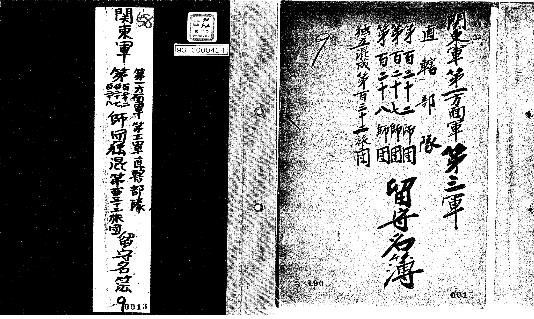 関東軍第一方面軍第三軍
直轄部隊
第百二十二師団
第百二十七師団
第百二十八師団
独立混成第百三十二旅団
留守名簿
関東軍
第一方面軍第三軍直轄部隊
師団独混第百三十二旅団留守名簿
9
0013